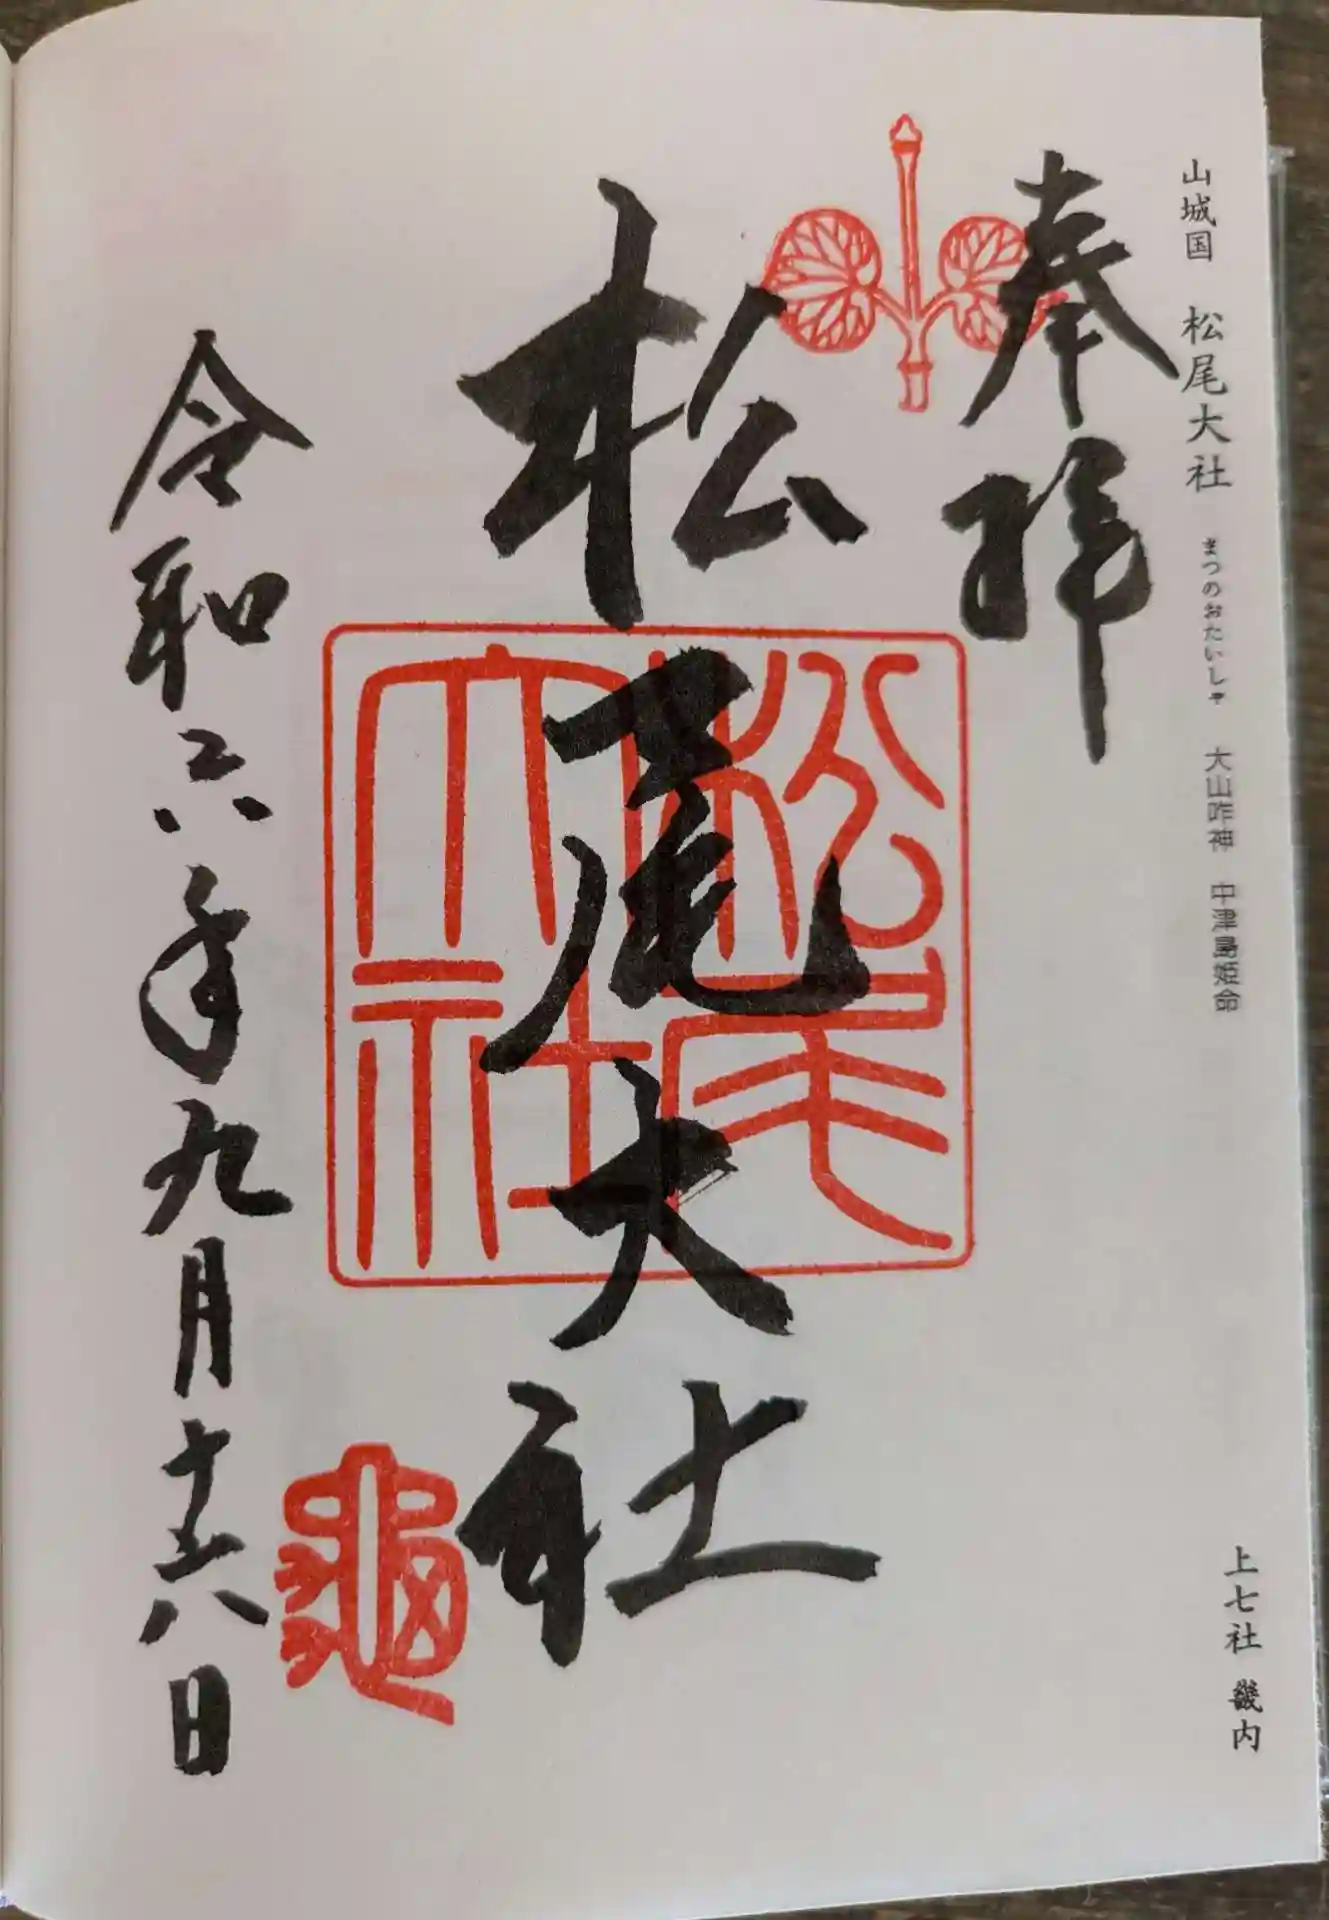 山城国 松尾大社 まつのおたいしゃ 大山咋神 中津島姫命
上七社 畿内
奉拝
松尾大社
松尾大社
令和六年九月十六日